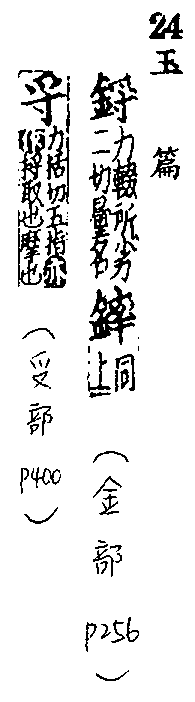 24 玉篇
鋝 力輟所劣二切量名 同上 (金部 p256)
寽 力括切五指亦作捋取也摩也 (受部 p400)